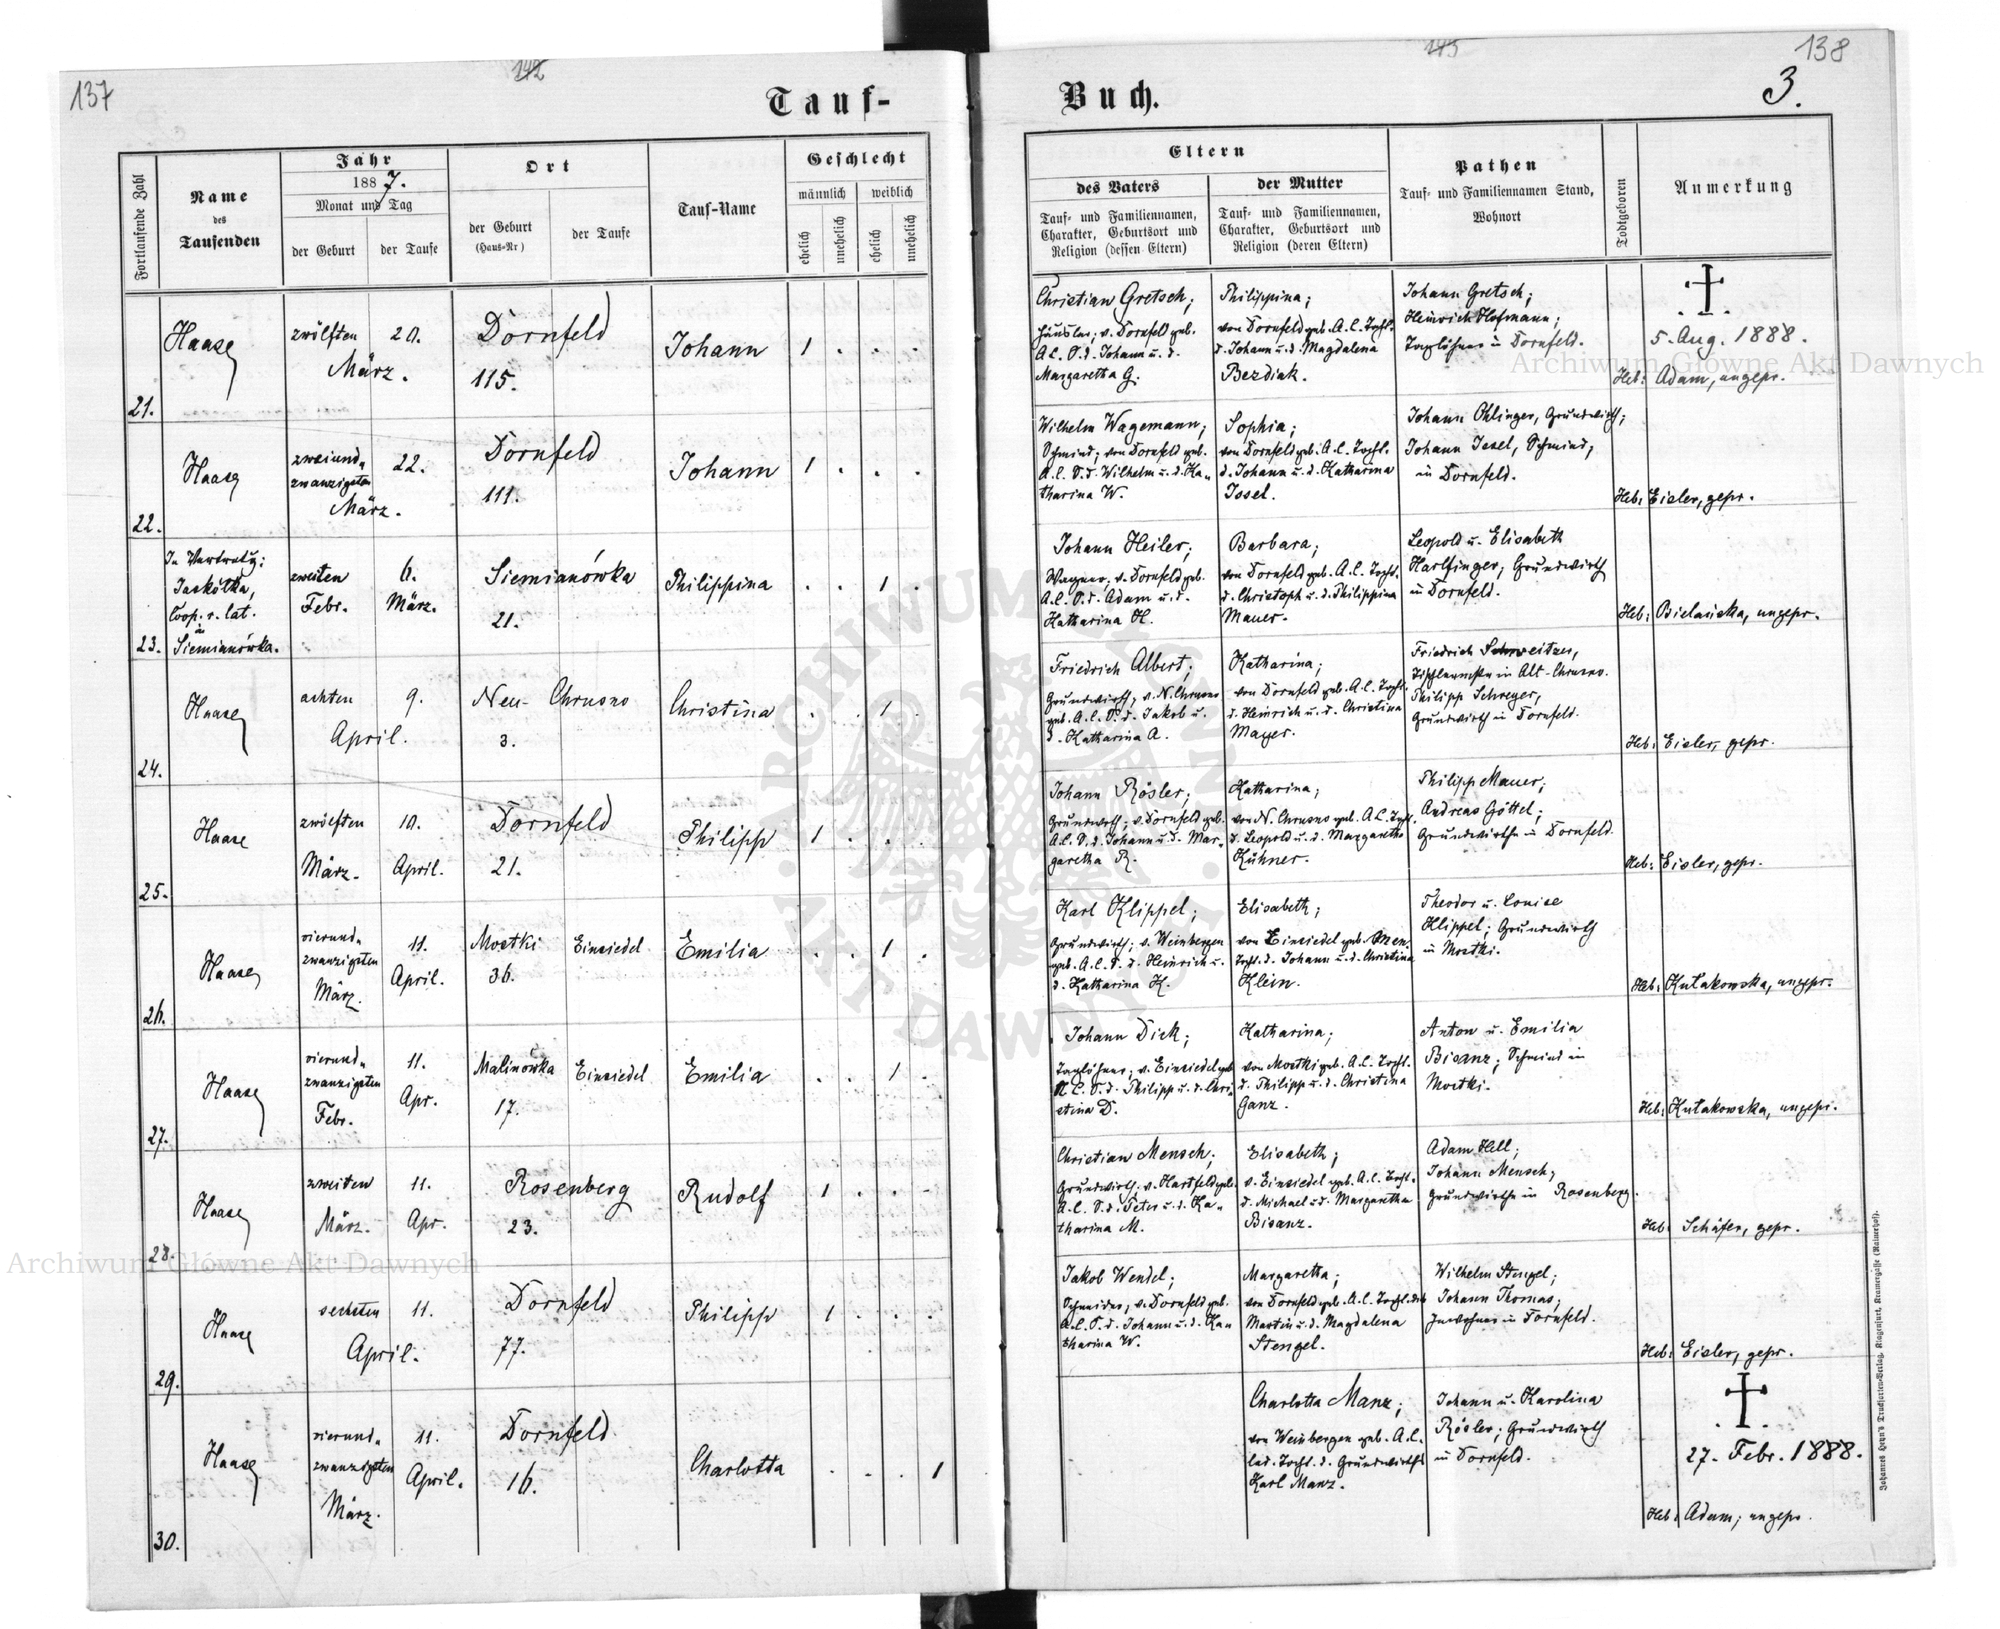 137
142
Tauf-
Fortlaufende Zahl
Name
des
Taufenden
Jahr
1887.
Monat und Tag
der Geburt
der Taufe
Ort
der Geburt
(Haus-Nr)
der Taufe
Tauf-Name
Geschlecht
männlich
weiblich
ehelich
unehelich
ehelich
unehelich
21.
Haase
zwölften 20.
März.
Dornfeld
115.
Johann
1 . . .
22.
Haase
zweiund-
zwanzigsten
März.
22.
Dornfeld
111.
Johann
1 . . .
23.
In Vertretg:
Jaskółka,
Coop. r. lat.
in
Siemianówka.
zweiten
Febr.
6.
März.
Siemianówka
21.
Philippina
. . 1 .
24.
Haase
achten 9.
April.
Neu-Chrusno
3.
Christina
. . 1 .
25.
Haase
zwölften
März.
10.
April.
Dornfeld
21.
Philipp
1 . . .
26.
Haase
vierund-
zwanzigsten
März.
11.
April.
Mostki
36.
Einsiedel
Emilia
. . 1 .
27.
Haase
vierund-
zwanzigsten
Febr.
11.
Apr.
Malinówka
17.
Einsiedel
Emilia
. . 1 .
28.
Haase
zweiten
März.
11.
Apr.
Rosenberg
23.
Rudolf
1 . . .
29.
Haase
sechsten 11.
April.
Dornfeld
77.
Philipp
1 . . .
30.
Haase
vierund-
zwanzigsten
März.
11.
April.
Dornfeld
16.
Charlotta
. . . 1
143
138
3.
Buch.
Eltern
des Vaters
Tauf- und Familiennamen,
Charakter, Geburtsort und
Religion (dessen Eltern)
der Mutter
Tauf- und Familiennamen,
Charakter, Geburtsort und
Religion (deren Eltern)
Pathen
Tauf- und Familiennamen Stand,
Wohnort
Todtgeboren
Anmerkung
Christian Gretsch;
Häusler; v. Dornfeld geb.
A.C. S.d. Johann u. d.
Margaretha G.
Philippina;
von Dornfeld geb. A.C. Tocht.
d. Johann u. d. Magdalena
Bezdiak.
Johann Gretsch;
Heinrich Hofmann;
Taglöhner in Dornfeld.
5. Aug. 1888.
Heb: Adam, ungepr.
Wilhelm Wagemann;
Schmied; von Dornfeld geb.
A.C. S.d. Wilhelm u. d. Ka-
tharina W.
Sophia;
von Dornfeld geb. A.C. Tocht.
d. Johann u. d. Katharina
Josel.
Johann Ohlinger, Grundwirth;
Johann Jesel, Schmied,
in Dornfeld.
Heb: Eisler, gepr.
Johann Heiler;
Wagner; v. Dornfeld geb.
A.C. S.d. Adam u. d.
Katharina H.
Barbara;
von Dornfeld geb. A.C. Tocht.
d. Christoph u. d. Philippina
Mauer.
Leopold u. Elisabeth
Harlfinger; Grundwirth
in Dornfeld.
Heb: Bielańska, ungepr.
Friedrich Albert;
Grundwirth; v. N. Chrusno
geb. A.C. S.d. Jakob u.
d. Katharina A.
Katharina;
von Dornfeld geb. A.C. Tocht.
d. Heinrich u. d. Christina
Mayer.
Friedrich Schweitzer,
Tischlermstr in Alt-Chrusno.
Philipp Schreyer,
Grundwirth in Dornfeld.
Heb: Eisler, gepr.
Johann Rösler;
Grundwirth; v. Dornfeld geb.
A.C. S.d. Johann u. d. Mar-
garetha R.
Katharina;
von N. Chrusno geb. A.C. Tocht.
d. Leopold u. d. Margaretha
Kühner.
Philipp Mauer;
Andreas Göttel;
Grundwirthe in Dornfeld.
Heb: Eisler, gepr.
Karl Klippel;
Grundwirth; v. Weinbergen
geb. A.C. S.d. Heinrich u.
d. Katharina K.
Elisabeth;
von Einsiedel geb. Men.
Tocht. d. Johann u. d. Christina
Klein.
Theodor u. Louise
Klippel; Grundwirth
in Mostki.
Heb: Kułakowska, ungepr.
Johann Dick;
Taglöhner; v. Einsiedel geb.
A.C. S.d. Philipp u. d. Chri-
stina D.
Katharina;
von Mostki geb. A.C. Tocht.
d. Philipp u. d. Christina
Ganz.
Anton u. Emilia
Bisanz; Schmied in
Mostki.
Heb: Kułakowska, ungepr.
Christian Mensch;
Grundwirth; v. Hartfeld geb.
A.C. S.d. Peter u. d. Ka-
tharina M.
Elisabeth;
v. Einsiedel geb. A.C. Tocht.
d. Michael u d. Margaretha
Bisanz.
Adam Hell;
Johann Mensch;
Grundwirthe in Rosenberg.
Heb: Schäfer, gepr.
Jakob Wendel;
Schneider; v. Dornfeld geb.
A.C. S.d. Johann u. d. Ka-
tharina W.
Margaretha;
von Dornfeld geb. A.C. Tocht. des
Martin u. d. Magdalena
Stengel.
Wilhelm Stengel;
Johann Thomas;
Inwohner in Dornfeld.
Heb: Eisler, gepr.
Charlotta Manz;
von Weinbergen geb. A.C.
led. Tocht. d. Grundwirths
Karl Manz.
Johann u. Karolina
Rösler; Grundwirth
in Dornfeld.
27. Febr. 1888.
Heb: Adam; ungepr.
Johannes Heyn's Drucksorten-Verlag, Klagenfurt, Kramergasse (Rainerhof).
Archiwum Główne Akt Dawnych
Archiwum Główne Akt Dawnych